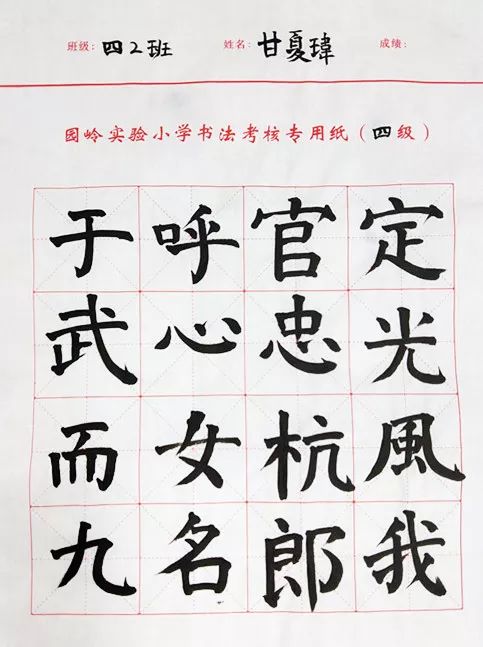 班级: 四2班 姓名: 甘夏瑋 成绩:
园岭实验小学书法考核专用纸(四级)
定光風我
官忠杭郎
呼心女名
于武而九